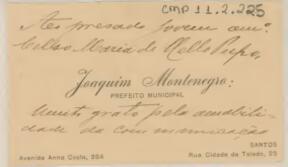 CMP 11.2.225
Ao presado jovem am.º
Celso Maria de Mello Pupo,
Joaquim Montenegro:
PREFEITO MUNICIPAL
Muito grato pela amabili-
dade da communicação
SANTOS
Avenida Anna Costa, 264
Rua Cidade de Toledo, 25